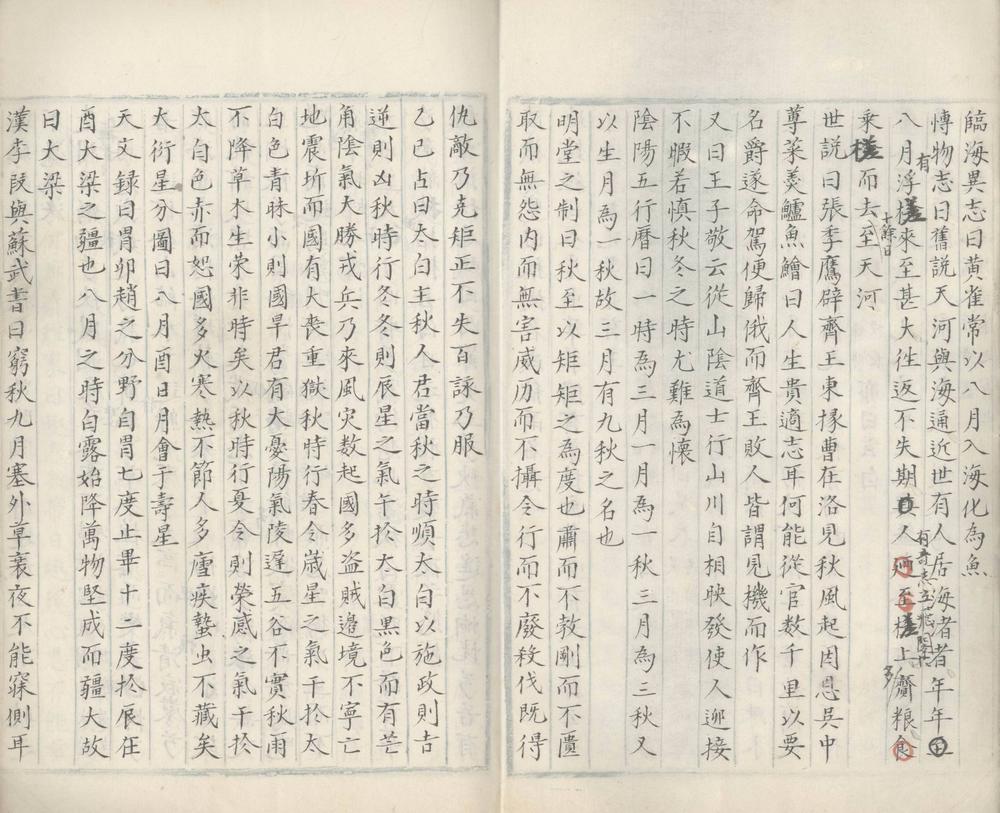 臨海異志曰黃雀常以八月入海化為魚
博物志曰舊說天河與海通近世有人居海者年年
八月有浮槎來至甚大往返不失期其人有奇志立飛閣於槎上多齎粮食
乘槎而去十餘日至天河
世說曰張季鷹辟齊王東掾曹在洛見秋風起因思吳中
蓴菜羹鱸魚鱠曰人生貴適志耳何能從官数千里以要
名爵遂命駕便歸俄而齊王敗人皆謂見機而作
又曰王子敬云從山陰道士行山川自相映發使人迎接
不暇若慎秋冬之時尤難為懷
陰陽五行曆曰一時為三月一月為一秋三月為三秋又
以生月為一秋故三月有九秋之名也
明堂之制曰秋至以矩矩之為度也肅而不敦剛而不匱
取而無怨内而無害威历而不攝令行而不廢殺伐既得
仇敵乃克矩正不失百詠乃服
乙巳占曰太白主秋人君當秋之時順太白以施政則吉
逆則凶秋時行冬冬則辰星之氣午扵太白黒色而有芒
角陰氣大勝戎兵乃來風灾数起國多盗賊邉境不寧亡
地震坼而國有大喪重獄秋時行春令歲星之氣干扵太
白色青昧小則國旱君有大憂陽氣陵遅五谷不實秋雨
不降草木生荣非時矣以秋時行夏令則荣惑之氣干扵
太白色赤而恕國多火寒熱不節人多瘧疾蟄虫不藏矣
大衍星分圖曰八月酉日月會于壽星
天文録曰胃卯趙之分野自胃七度止畢十二度扵辰在
酉大梁之疆也八月之時白露始降萬物堅成而疆大故
曰大梁
漢李陵與蘇武書曰窮秋九月塞外草衰夜不能寐側耳